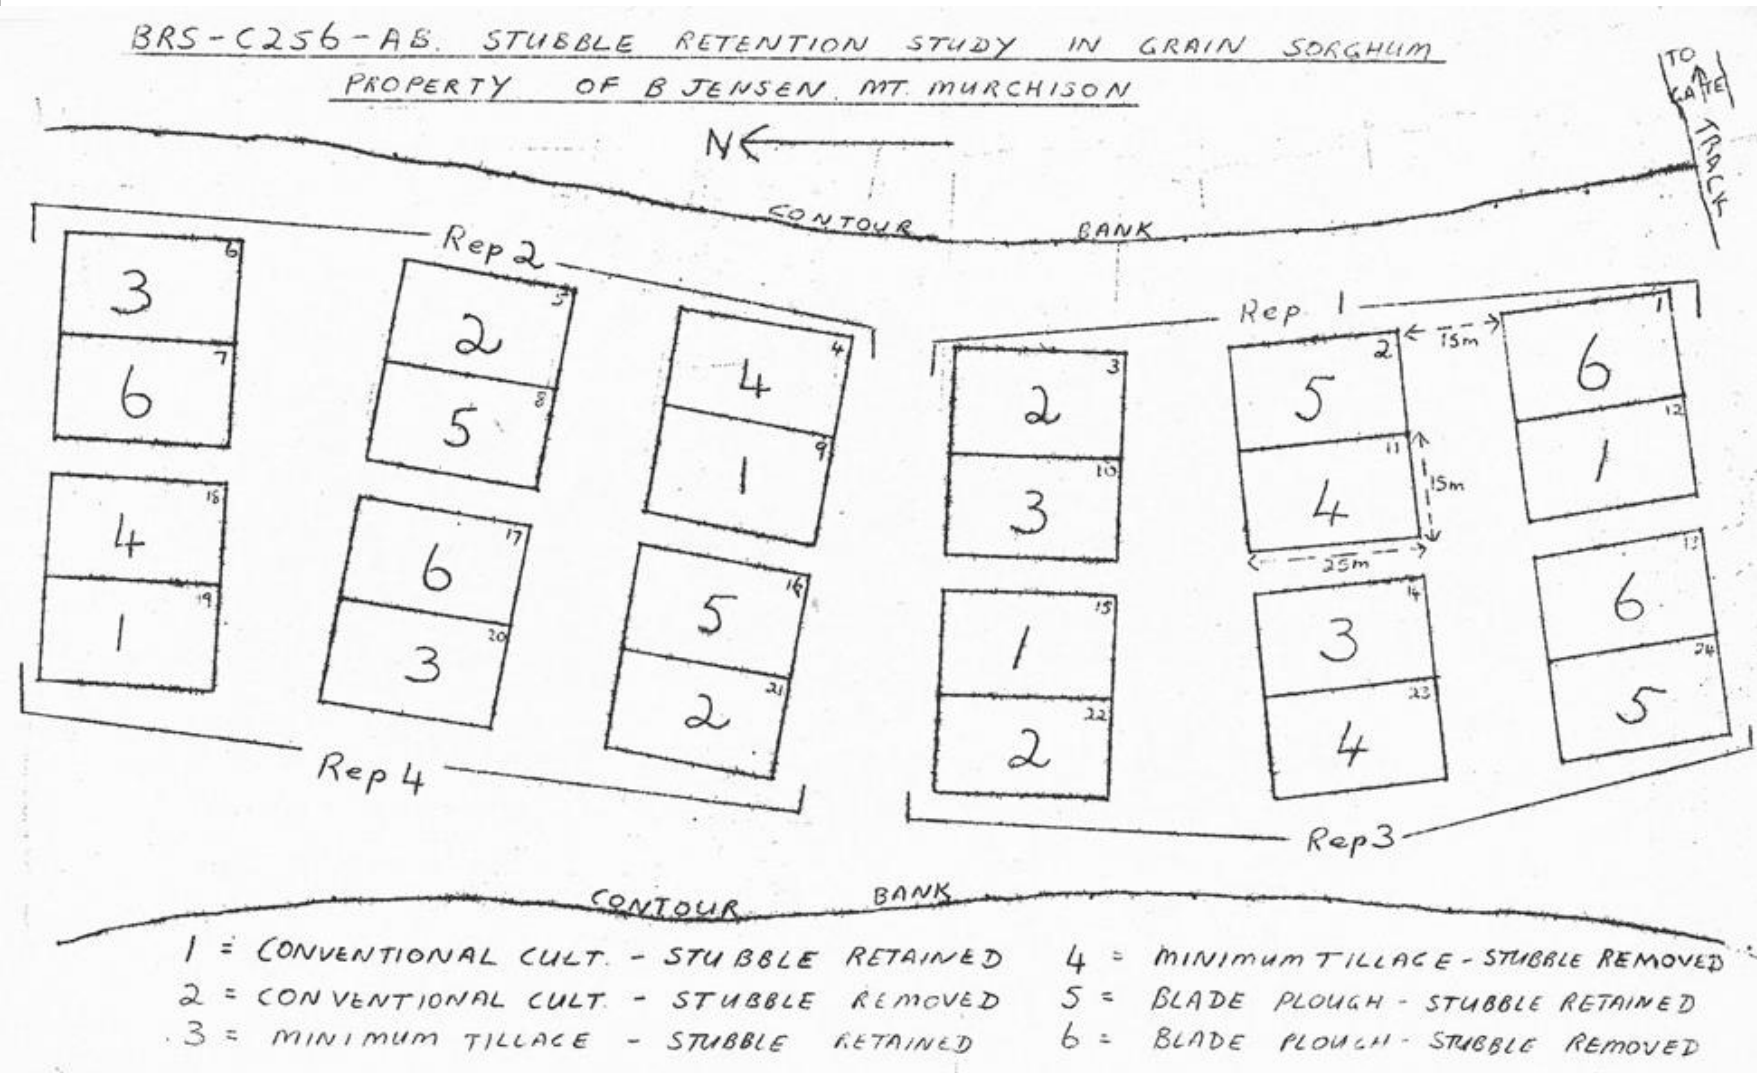 BRS-C256-AB. STUBBLE RETENTION STUDY IN GRAIN SORGHUM
PROPERTY OF B JENSEN. MT. MURCHISON
TO
GATE
TRACK
N
CONTOUR BANK
Rep 2
Rep. 1
3 6
6 7
2 5
5 8
4 4
1 9
2 3
3 10
5 2
4 11
6 1
1 12
15m
15m
25m
4 18
1 19
6 17
3 20
5 16
2 21
1 15
2 22
3 14
4 23
6 13
5 24
Rep 4
Rep 3
CONTOUR BANK
1 = CONVENTIONAL CULT. - STUBBLE RETAINED
2 = CONVENTIONAL CULT. - STUBBLE REMOVED
3 = MINIMUM TILLAGE - STUBBLE RETAINED
4 = MINIMUM TILLAGE - STUBBLE REMOVED
5 = BLADE PLOUGH - STUBBLE RETAINED
6 = BLADE PLOUGH - STUBBLE REMOVED